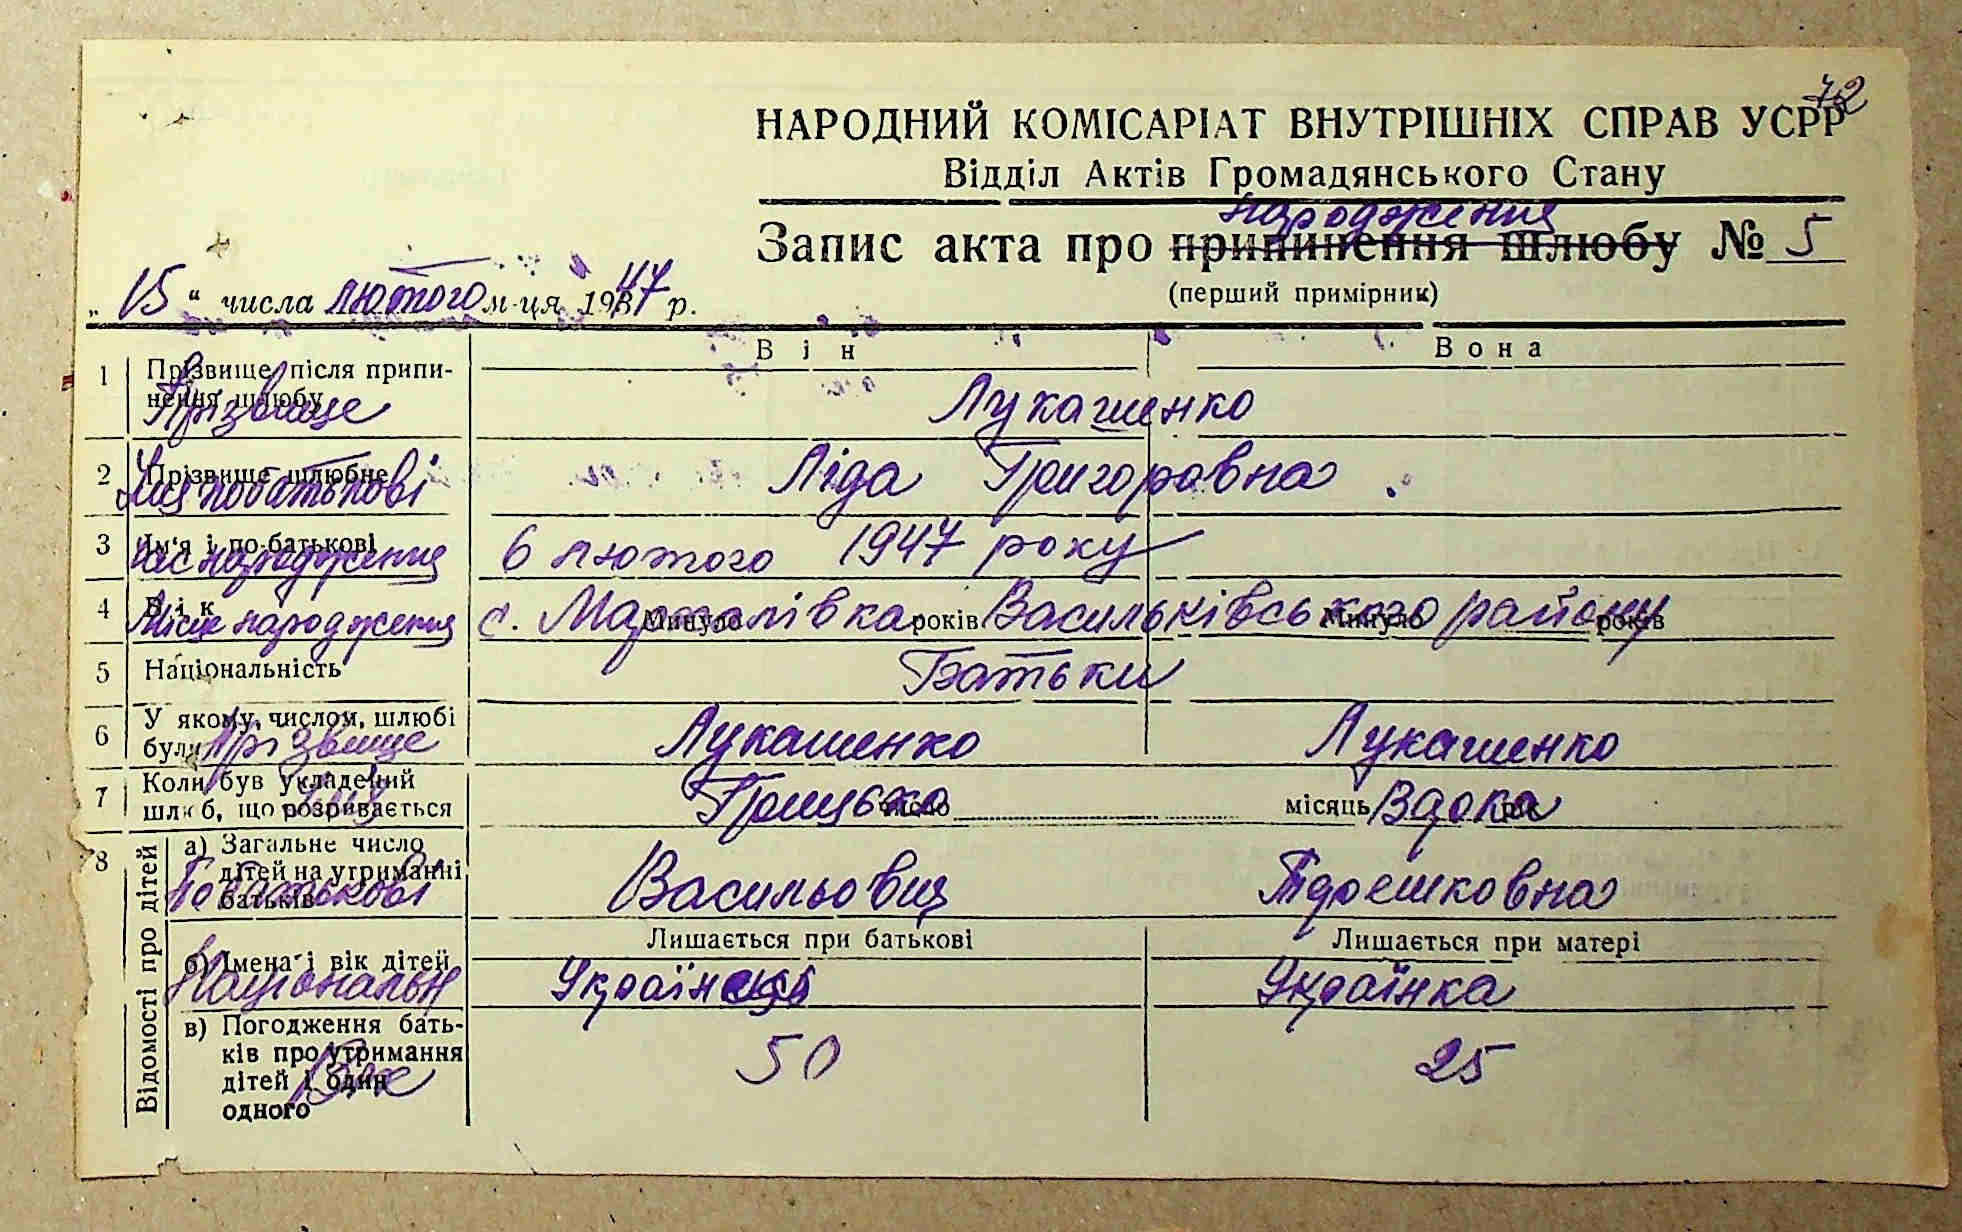 72
НАРОДНИЙ КОМІСАРІАТ ВНУТРІШНІХ СПРАВ УСРР
Відділ Актів Громадянського Стану
народження
Запис акта про припинення шлюбу № 5
(перший примірник)
„ 15 “ числа лютого м-ця 1947 р.
Він Вона
1 Прізвище після припинення шлюбу
Прізвище Лукашенко
2 Прізвище шлюбне
Імя побатькові Ліда Григоровна
3 Ім'я і по-батькові
Час народження 6 лютого 1947 року
4 Вік Минуло років Минуло років
Місце народження с. Марталівка Васильківського району
5 Національність Батьки
6 У якому, числом, шлюбі були
Прізвище Лукашенко Лукашенко
7 Коли був укладений
шлюб, що розривається число місяць рік
Імя Грицько Вдока
8 Відомості про дітей
а) Загальне число
дітей на утриманні
батьків
Побатькові Васильовиц Тдоешковна
Лишається при батькові Лишається при матері
б) Імена і вік дітей
Національн Українець Українка
в) Погодження бать-
ків про утримання
дітей і один
одного
Вік 50 25